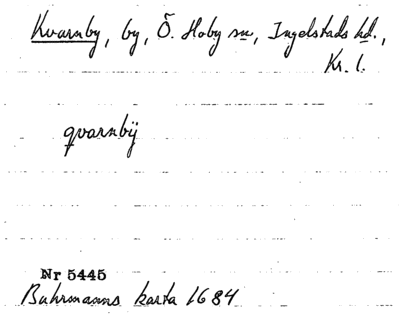 Kvarnby, by, Ö. Hoby sn, Ingelstads hd.,
Kr. l.
qvarnbÿ
Nr 5445
Buhrmanns karta 1684